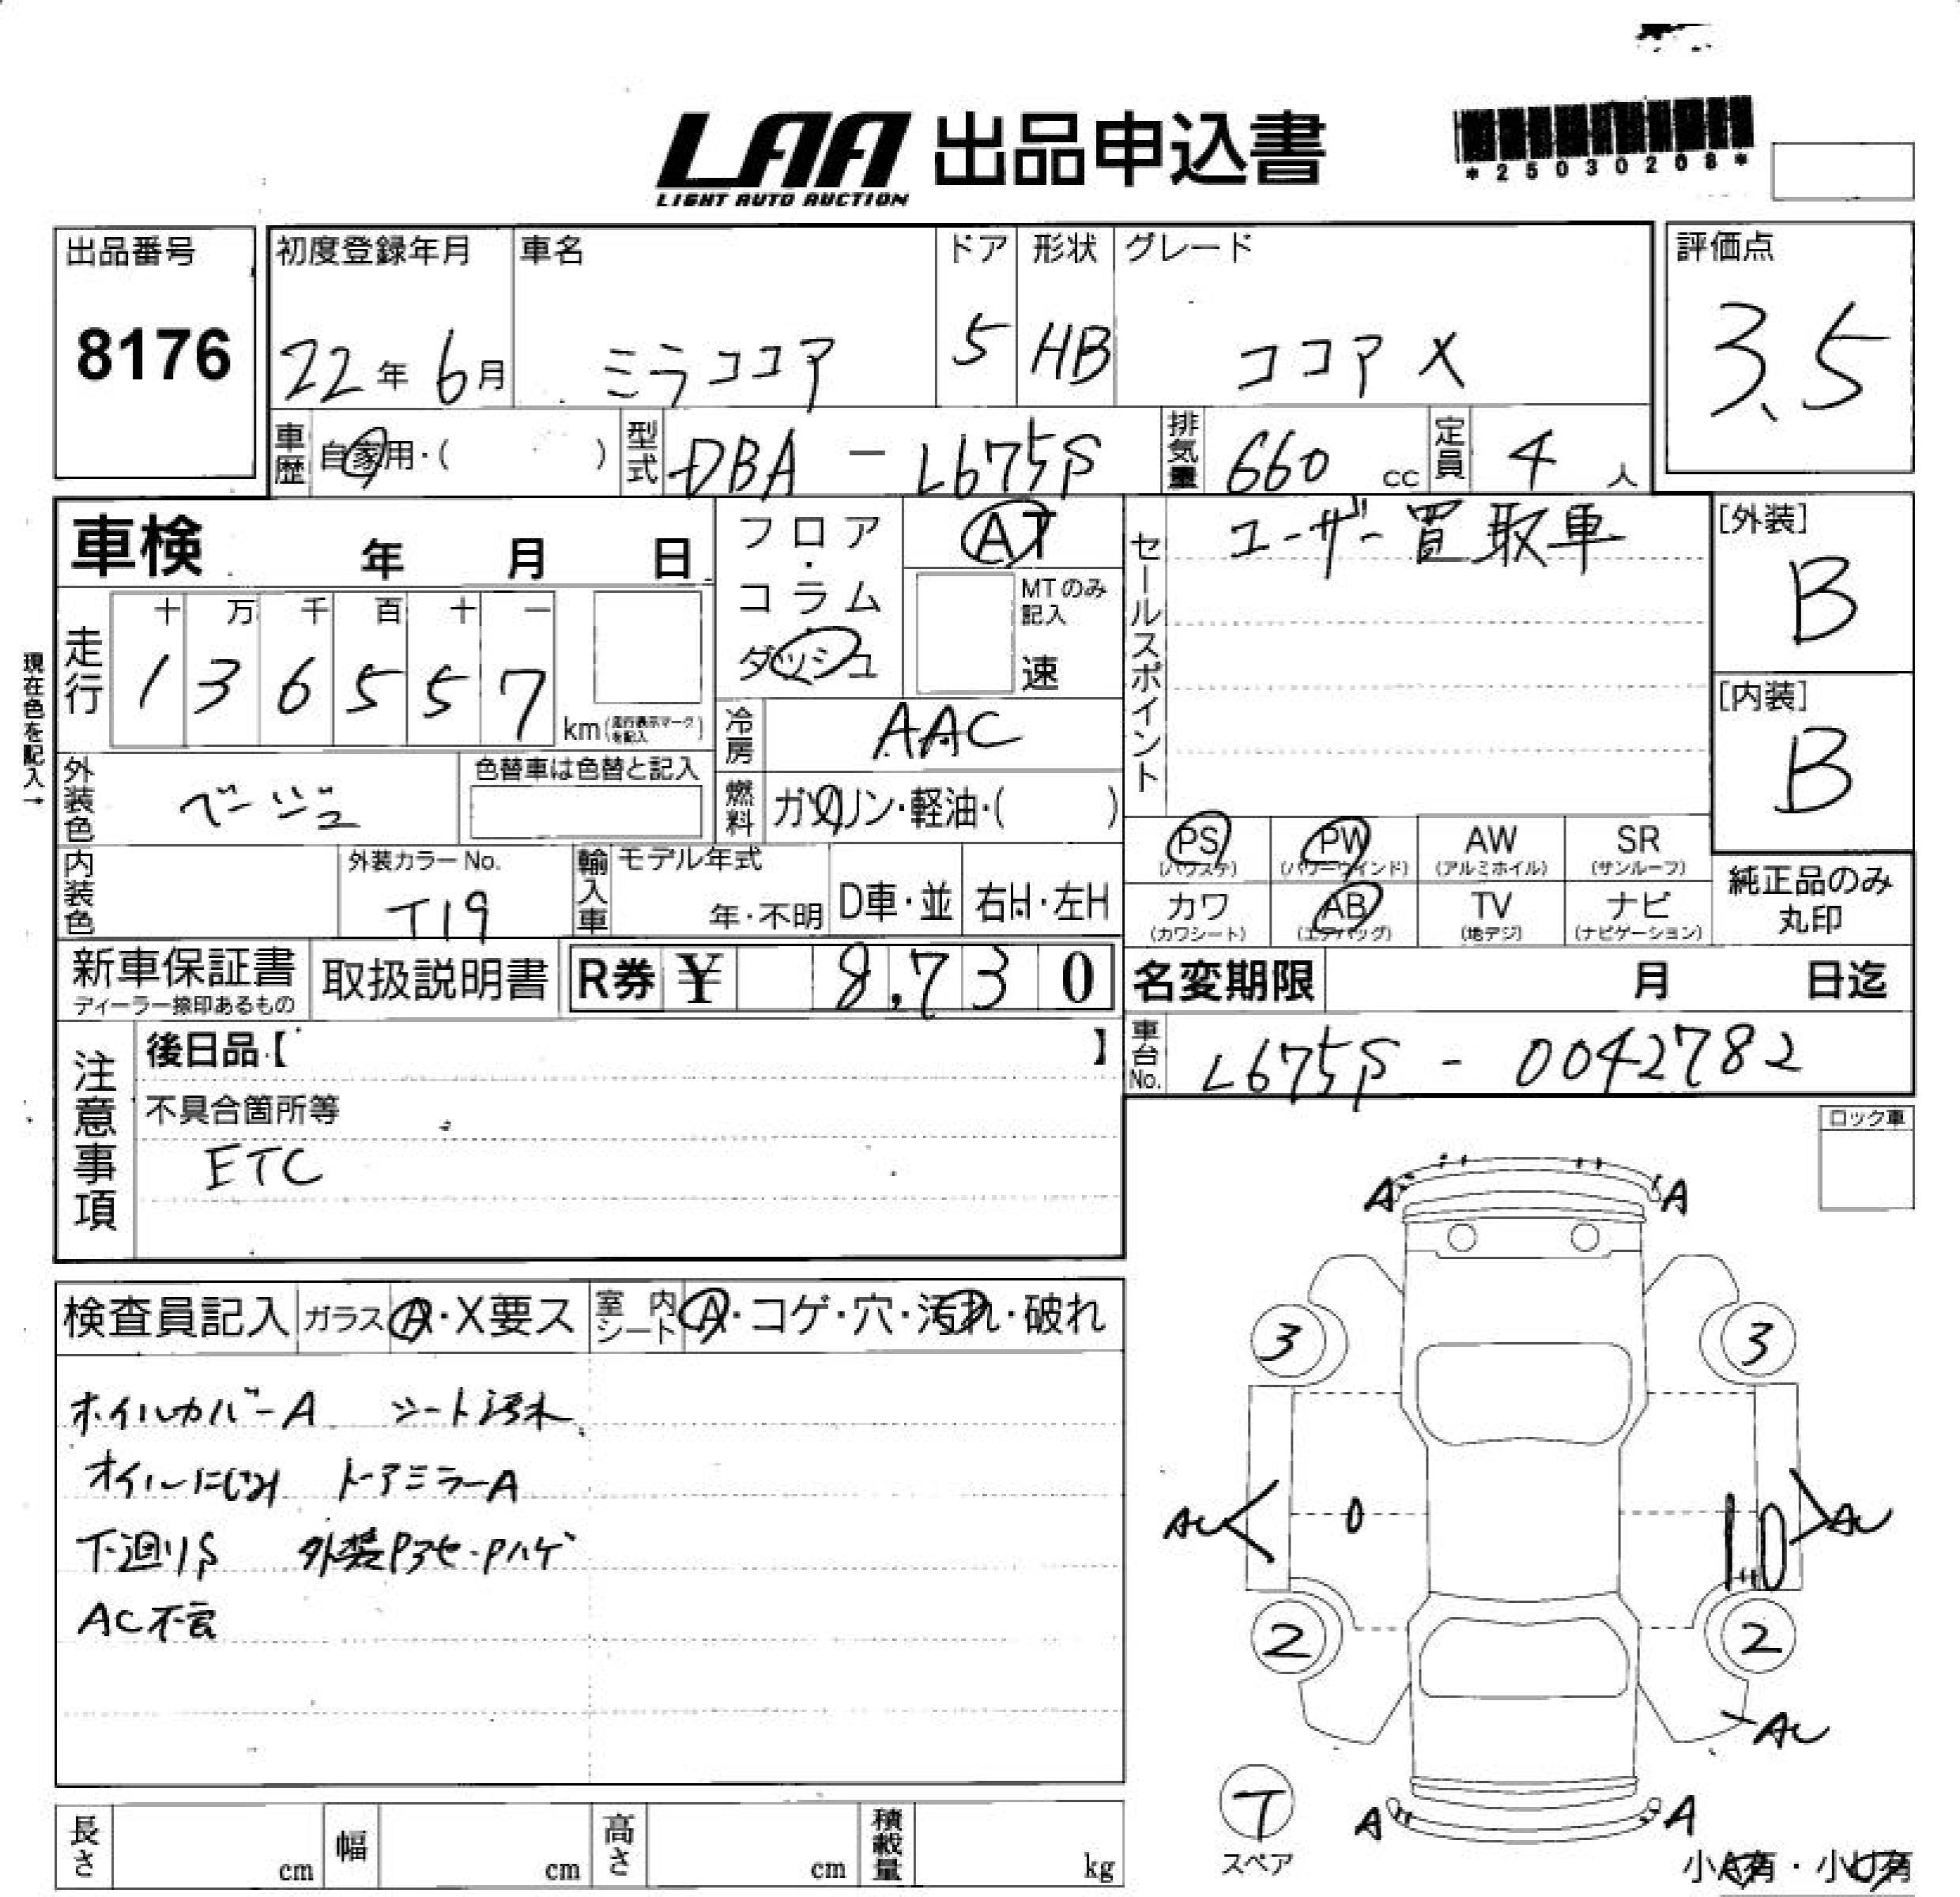 LAA 出品申込書
LIGHT AUTO AUCTION
*25030208*
出品番号
8176
初度登録年月
22年 6月
車名
ミラココア
ドア
5
形状
HB
グレード
ココア X
評価点
3.5
車歴 自家用・( )
型式 DBA - L675S
排気量 660 cc
定員 4 人
車検 年 月 日
フロア・コラム・ダッシュ
AT
MTのみ記入
速
セールスポイント
ユーザー買取車
[外装]
B
[内装]
B
現在色を記入→
走行
十 万 千 百 十 一
1 3 6 5 5 7
km(走行表示マークを記入)
冷房 AAC
燃料 ガソリン・軽油・( )
外装色 ベージュ
色替車は色替と記入
内装色
外装カラーNo.
T19
輸入車
モデル年式
年・不明
D車・並
右H・左H
PS
(パワステ)
PW
(パワーウインド)
AW
(アルミホイル)
SR
(サンルーフ)
カワ
(カワシート)
AB
(エアバッグ)
TV
(地デジ)
ナビ
(ナビゲーション)
純正品のみ
丸印
新車保証書
ディーラー捺印あるもの
取扱説明書
R券 ¥ 8,730
名変期限 月 日迄
車台No. L675S - 0042782
注意事項
後日品【 】
不具合箇所等
ETC
ロック車
検査員記入
ガラス A・X要ス
室内シート A・コゲ・穴・汚れ・破れ
ホイルカバーA シート汚れ
オイルにじみ ドアミラーA
下廻りS 外装Pアセ・Pハゲ
AC不良
A A
3 3
AU AU
2 2
AU
T
スペア
A A
小A有・小U有
長さ cm
幅 cm
高さ cm
積載量 kg